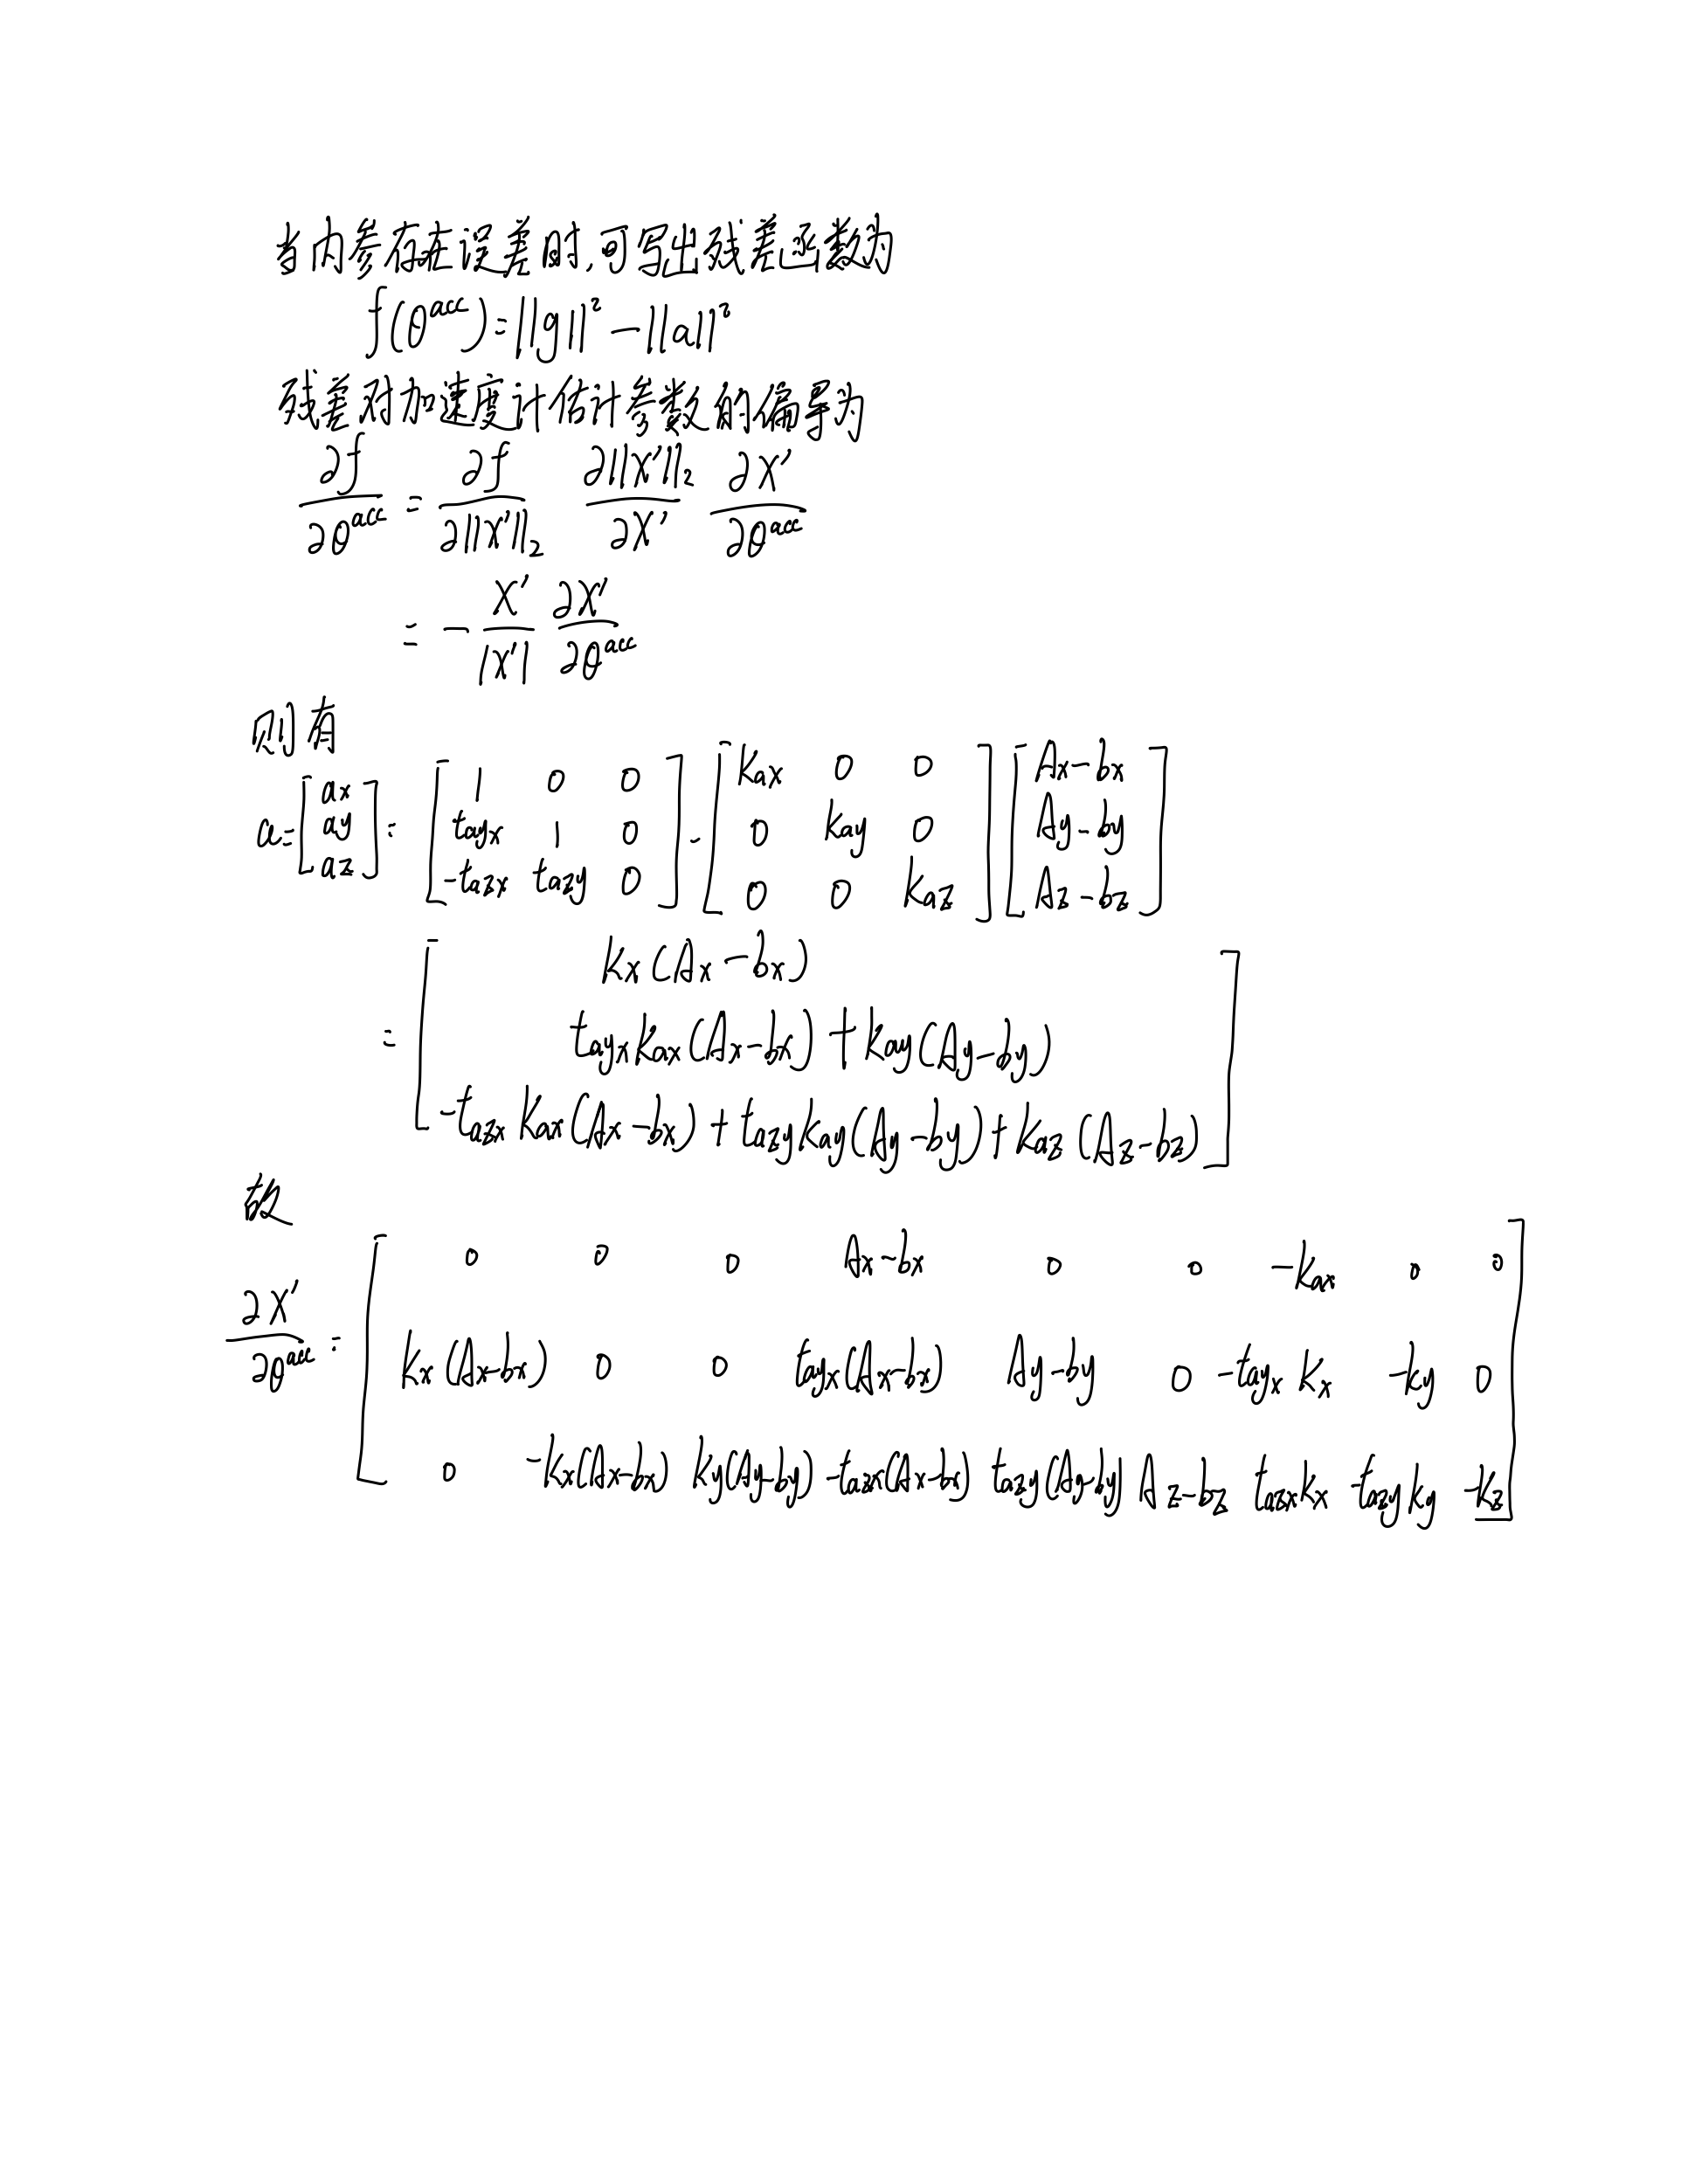 当内参存在误差时,可写出残差函数为
f(θ^{acc})=||g||²-||a||²
残差对加速度计估计参数的偏导为
\frac{∂f}{∂θ^{acc}} = \frac{∂f}{∂||X'||_2} \frac{∂||X'||_2}{∂X'} \frac{∂X'}{∂θ^{acc}}
= -\frac{X'}{|X'|} \frac{∂X'}{∂θ^{acc}}
则有
a = \begin{bmatrix} a_x \\ a_y \\ a_z \end{bmatrix} = \begin{bmatrix} 1 & 0 & 0 \\ t_{ayx} & 1 & 0 \\ -t_{azx} & t_{azy} & 0 \end{bmatrix} · \begin{bmatrix} k_{ax} & 0 & 0 \\ 0 & k_{ay} & 0 \\ 0 & 0 & k_{az} \end{bmatrix} \begin{bmatrix} A_x-b_x \\ A_y-b_y \\ A_z-b_z \end{bmatrix}
= \begin{bmatrix} k_x(A_x-b_x) \\ t_{ayx}k_{ax}(A_x-b_x)+k_{ay}(A_y-b_y) \\ -t_{azx}k_{ax}(A_x-b_x)+t_{azy}k_{ay}(A_y-b_y)+k_{az}(A_z-b_z) \end{bmatrix}
故
\frac{∂X'}{∂θ^{acc}} = \begin{bmatrix} 0 & 0 & 0 & A_x-b_x & 0 & 0 & -k_{ax} & 0 & 0 \\ k_x(A_x-b_x) & 0 & 0 & t_{ayx}(A_x-b_x) & A_y-b_y & 0 & -t_{ayx}k_x & -k_y & 0 \\ 0 & -k_x(A_x-b_x) & k_y(A_y-b_y) & -t_{azx}(A_x-b_x) & t_{azy}(A_y-b_y) & A_z-b_z & t_{azx}k_x & -t_{azy}k_y & -k_z \end{bmatrix}